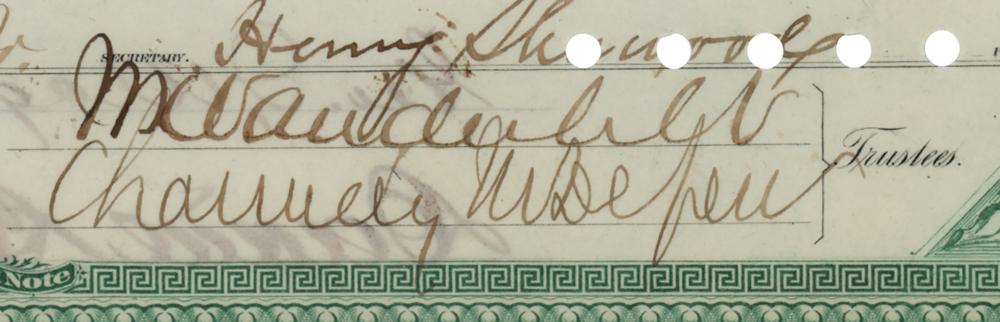 SECRETARY. Henry Sherwood
Wm K Vanderbilt
Chauncey M Depew
Trustees.
Note